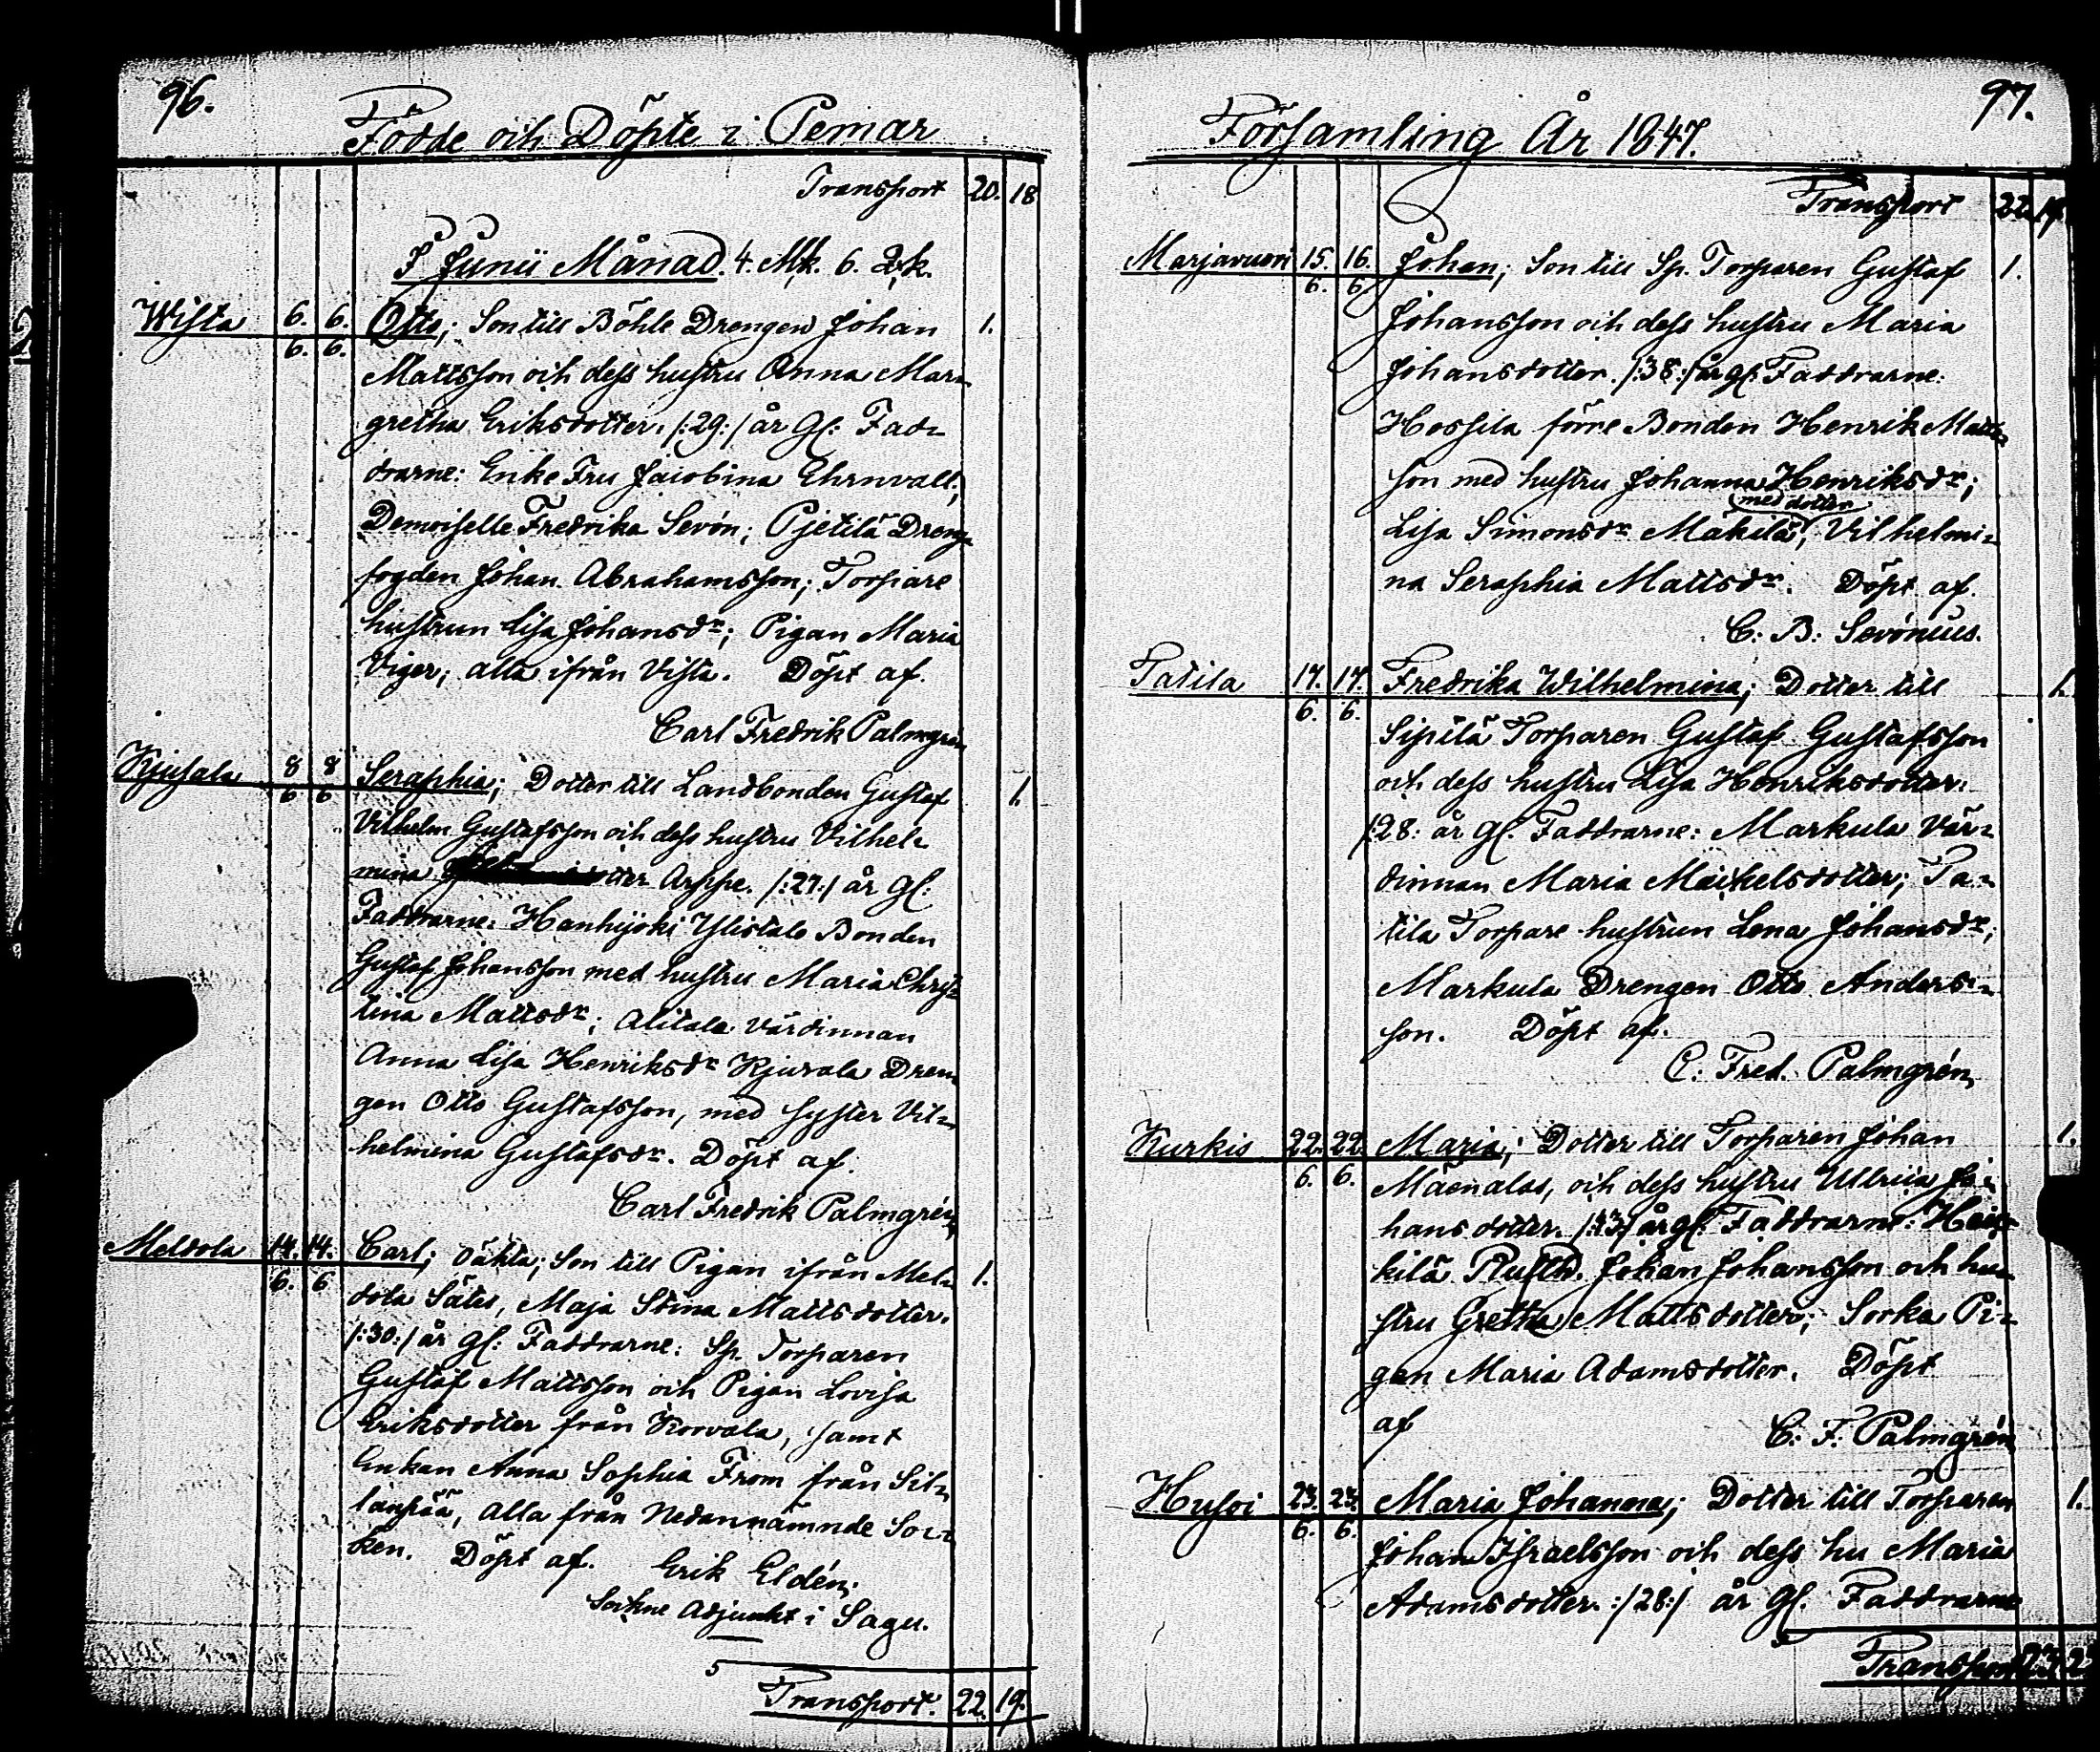 96.
Födde och Döpte i Pemar
Transport 20. 18
I Junii Månad. 4. Mk. 6. Qk.
Wista 6. 6. Otto; Son till Böhle Drengen Johan 1.
6. 6.
Mattsson och dess hustru Anna Mar=
gretha Eriksdotter. /:29:/ år gl: Fad=
drarne: Enke Fru Jacobina Ehrnvall;
Demoiselle Fredrika Sevón; Pjetilä Dreng
fogden Johan Abrahamsson; Torpare
hustrun Lisa Johansdr; Pigan Maria
Viger; alla ifrån Vista. Döpt af.
Carl Fredrik Palmgrén
8 8 Seraphia; Dotter till Landbonden Gustaf 1.
6 6
Vilhelm Gustafsson och dess hustru Vilhel=
mina Arppe. /:27:/ år gl:
Faddrarne: Hanhijoki Ylistalo Bonden
Gustaf Johansson med hustru Maria Chris=
tina Mattsdr; Alitalo Värdinnan
Anna Lisa Henriksdr Kjurala Dren=
gen Otto Gustafsson, med syster Vil=
helmina Gustafsdr. Döpt af.
Carl Fredrik Palmgrén
Meldola 14. 14. Carl; oäkta; Son till Pigan ifrån Mel= 1.
6. 6
dola Säteri, Maja Stina Mattsdotter.
/:30:/ år gl: Faddrarne: Sp. Torparen
Gustaf Mattsson och Pigan Lovisa
Eriksdotter från Korvala, samt
Enkan Anna Sophia From från Sil=
länpää, alla från Nedannämnde Soc=
ken. Döpt af. Erik Eldén.
Sockne Adjunkt i Sagu.
Transport. 22. 19.
97.
Församling År 1847.
Transport 22. 19.
Marjavuori 15. 16. Johan; Son till Sp. Torparen Gustaf 1.
6. 6
Johansson och dess hustru Maria
Johansdotter. /:38:/ år gl: Faddrarne:
Hossila förre Bonden Henrik Matts=
son med hustru Johanna Henriksdr;
med dotter
Lisa Simonsdr Mäkilä, Vilhelmi=
na Seraphia Mattsdr. Döpt af.
C: B: Sevónius.
Tatila 17. 17. Fredrika Wilhelmina; Dotter till 1.
6. 6.
Sipilä Torparen Gustaf Gustafsson
och dess hustru Lisa Henriksdotter.
/:28: år gl: Faddrarne: Markula Vär=
dinnan Maria Maikelsdotter; Ta=
tila Torpare hustrun Lena Johansdr;
Markula Drengen Otto Anders=
son. Döpt af.
C: Fred. Palmgrén
Kurkis 22. 22. Maria; Dotter till Torparen Johan 1.
6. 6.
Mäenalas, och dess hustru Ullrica Jo=
hansdotter. år gl: Faddrarne: Hei=
kilä Rusth. Johan Johansson och hu=
stru Gretha Mattsdotter; Sorka Pi=
gan Maria Adamsdotter. Döpt
af C: F: Palmgrén
Husoi 23. 23. Maria Johanna; Dotter till Torparen 1.
6. 6.
Johan Israelsson och dess hu Maria
Adamsdotter. :/28:/ år gl: Faddrarne
Transport